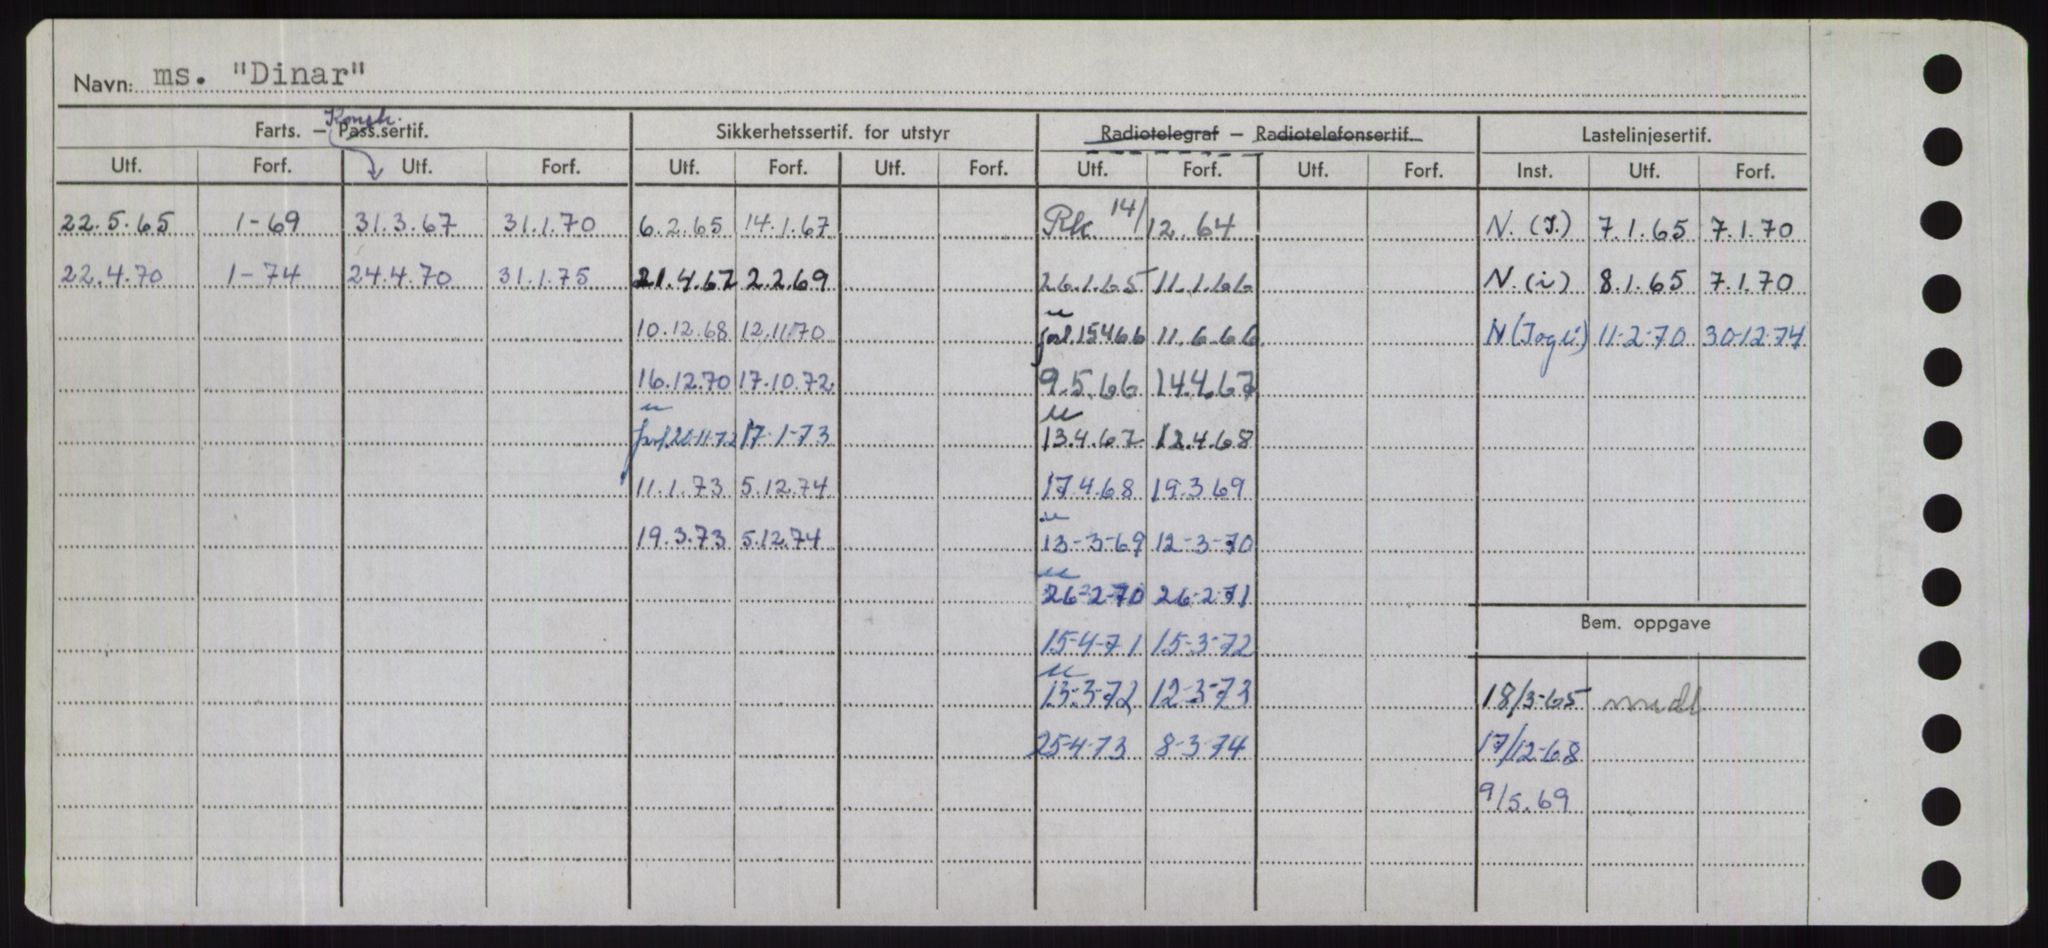 Navn: ms. "Dinar"
Konstr.
Farts. – Pass.sertif. Sikkerhetssertif. for utstyr Radiotelegraf – Radiotelefonsertif. Lastelinjesertif.
Utf. Forf. Utf. Forf. Utf. Forf. Utf. Forf. Utf. Forf. Utf. Forf. Inst. Utf. Forf.
22.5.65 1-69 31.3.67 31.1.70 6.2.65 14.1.67 Rk. 14/12.64 N.(I.) 7.1.65 7.1.70
22.4.70 1-74 24.4.70 31.1.75 21.4.67 2.2.69 26.1.65 11.1.66 N.(i) 8.1.65 7.1.70
10.12.68 12.11.70 forl.15466 11.6.66 N(I og i) 11-2-70 30-12-74
16.12.70 17.10.72 9.5.66 14.4.67
forl 20-11-72 17-1-73 13.4.67 12.4.68
11.1.73 5.12.74 17.4.68 19.3.69
19.3.73 5.12.74 13-3-69 12-3-70
26-2-70 26-2-71
15-4-71 15-3-72
Bem. oppgave
13-3-72 12-3-73 18/3-65
25-4-73 8-3-74 17/12-68
9/5.69